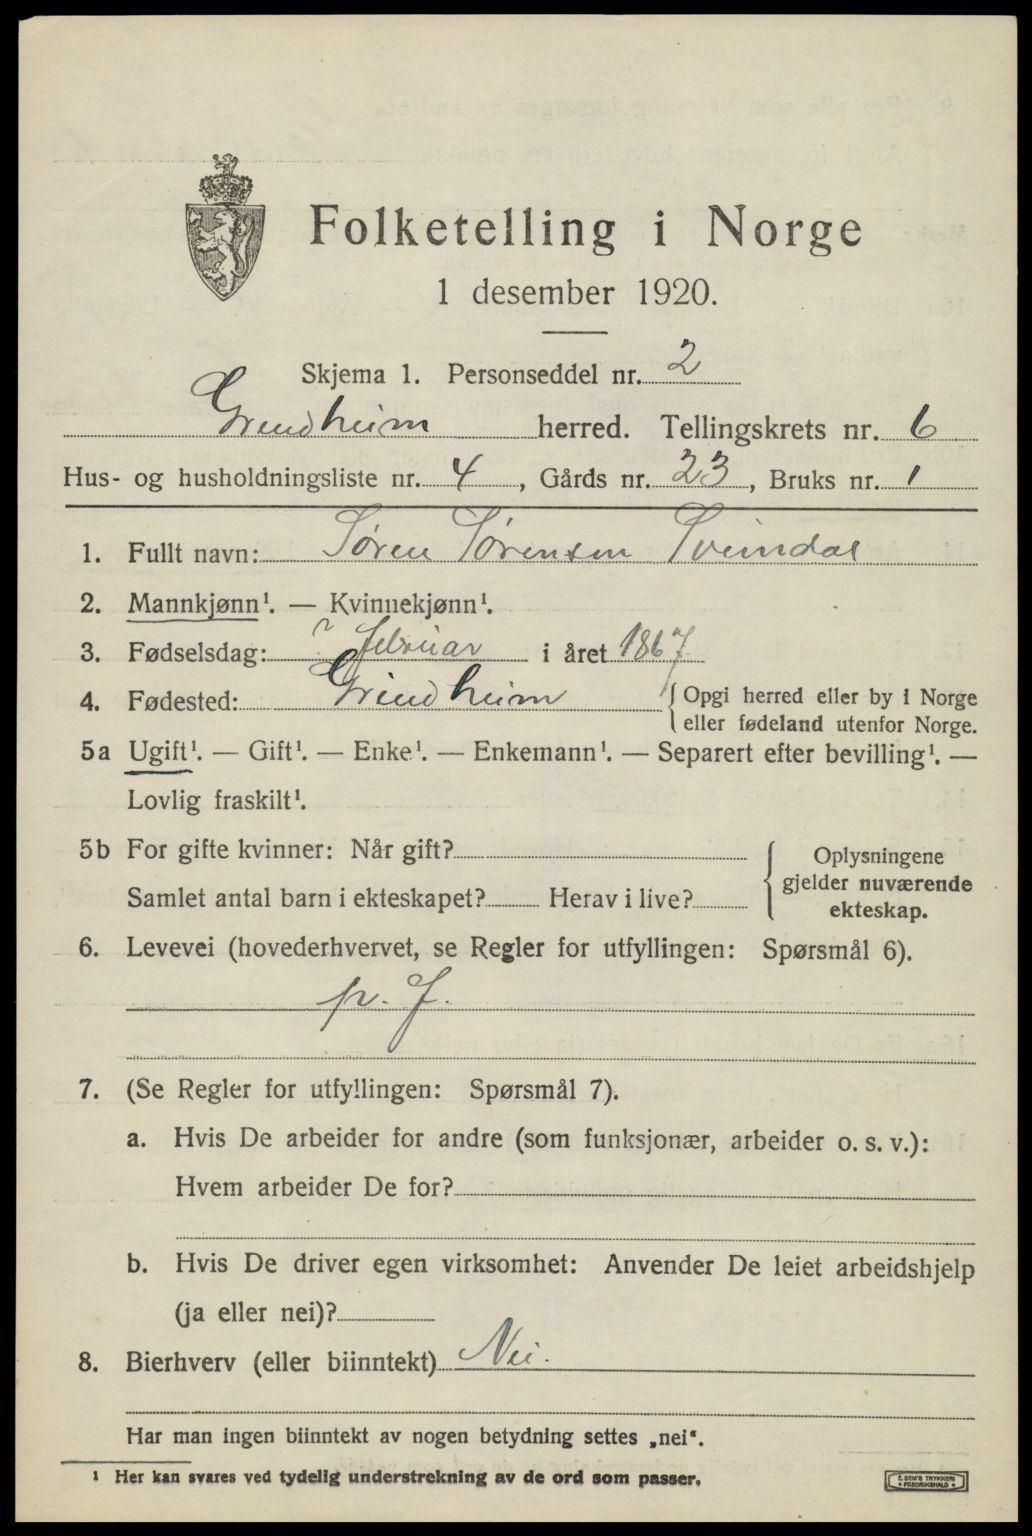 Folketelling i Norge
1 desember 1920.
Skjema 1. Personseddel nr. 2
Grindheim herred. Tellingskrets nr. 6
Hus- og husholdningsliste nr. 4, Gårds nr. 23, Bruks nr. 1
1. Fullt navn: Søren Sørensen Sveindal
2. Mannkjønn¹. — Kvinnekjønn¹.
3. Fødselsdag: ? februar i året 1867
4. Fødested: Grindheim { Opgi herred eller by i Norge
eller fødeland utenfor Norge.
5a Ugift¹. — Gift¹. — Enke¹. — Enkemann¹. — Separert efter bevilling¹. —
Lovlig fraskilt¹.
5b For gifte kvinner: Når gift?
Samlet antal barn i ekteskapet? Herav i live?
{ Oplysningene
gjelder nuværende
ekteskap.
6. Levevei (hovederhvervet, se Regler for utfyllingen: Spørsmål 6).
p. f.
7. (Se Regler for utfyllingen: Spørsmål 7).
a. Hvis De arbeider for andre (som funksjonær, arbeider o. s. v.):
Hvem arbeider De for?
b. Hvis De driver egen virksomhet: Anvender De leiet arbeidshjelp
(ja eller nei)?
8. Bierhverv (eller biinntekt) Nei.
Har man ingen biinntekt av nogen betydning settes „nei“.
¹ Her kan svares ved tydelig understrekning av de ord som passer.
E. SEM'S TRYKKERI
FREDRIKSHALD